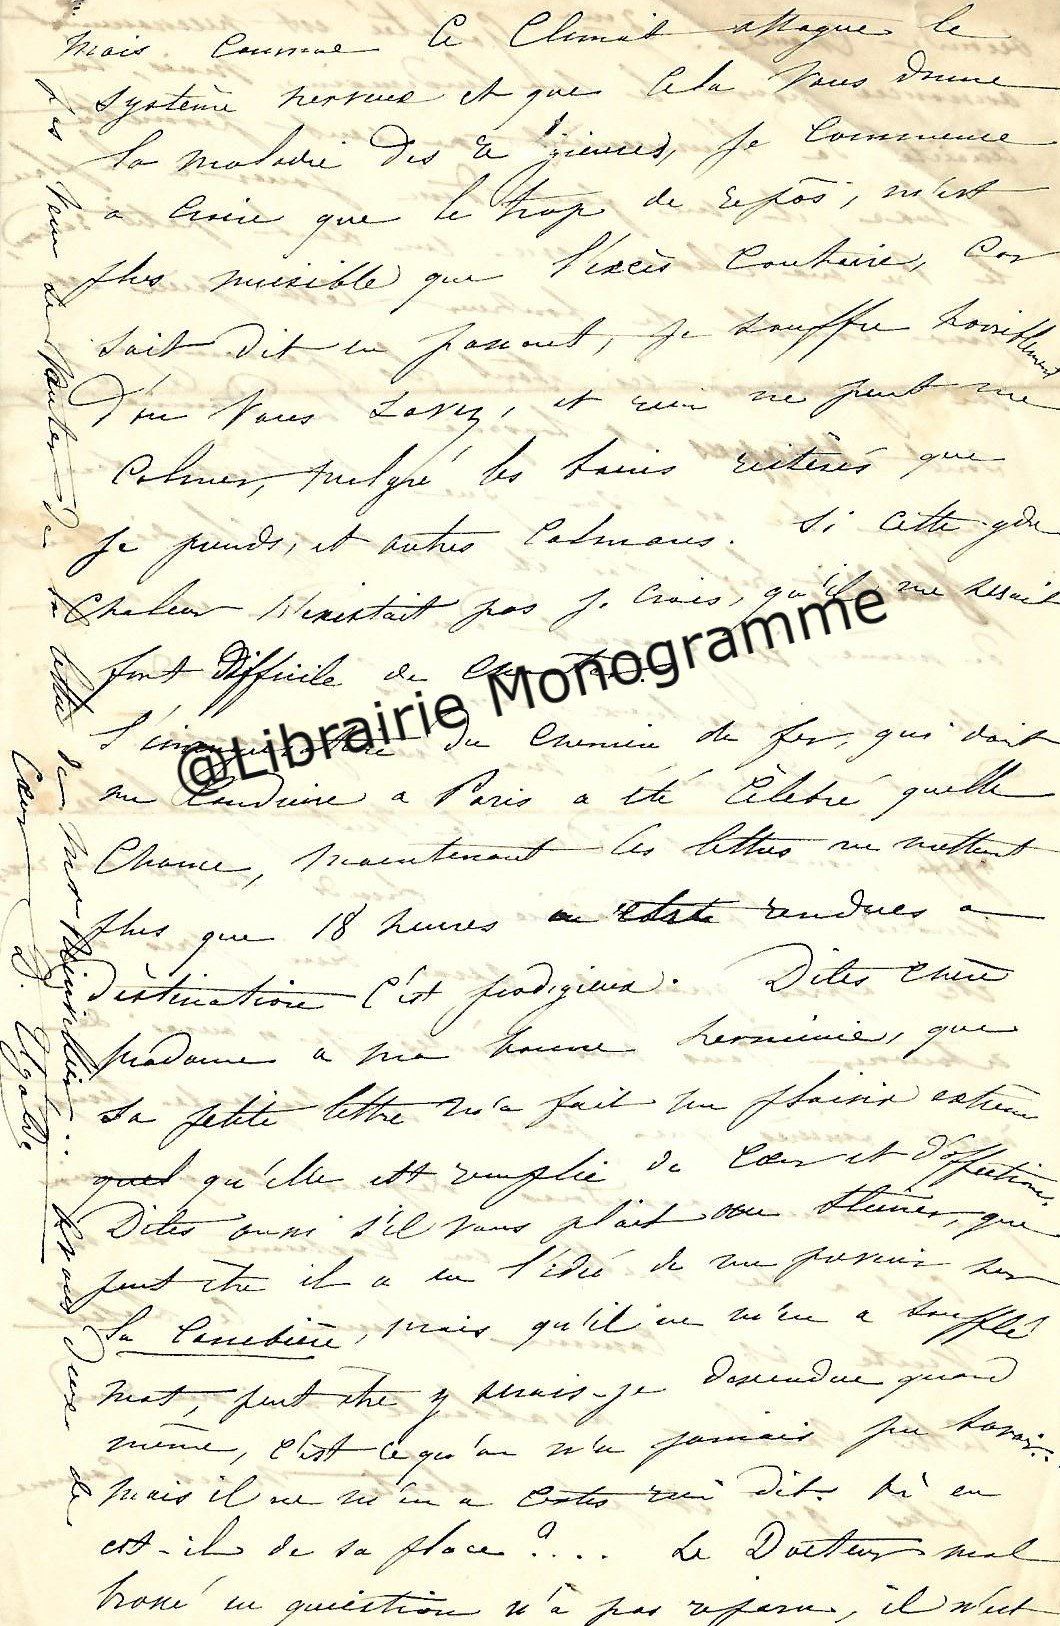 Mais comme ce climat attaque le
système nerveux et que cela vous donne
la maladie des je commence
a croire que le trop de repos, m'est
plus nuisible que l'excès contraire, car
soit dit en passant, je souffre horriblement
d'ou vous savez, et rien ne peut me
calmer, malgré les bains réitérés que
je prends, et autres calmans. Si cette gde
chaleur n'existait pas je crois, qu'il me serait
fort difficile de
du chemin de fer, qui doit
me conduire a Paris a été célébré quelle
chance, maintenant les lettres ne mettent
plus que 18 heures rendues a
destination c'est prodigieux. Dites chère
Madame a ma bonne herminie, que
sa petite lettre m'a fait un plaisir extrême
quel qu'elle est remplie de cœur et d'affection.
Dites aussi s'il vous plait que
peut être il a eu l'idée de me passer sur
la , mais qu'il ne m'en a soufflé
mot, peut être y serais-je descendue quand
même, c'est ce qu'on n'a jamais pu savoir...
Mais il ne m'en a certes rien dit. Où en
est-il de sa place ?... Le Docteur mal
in question n'a pas reparu, il n'est
de sa lettre de
Cœur D. Ugalde